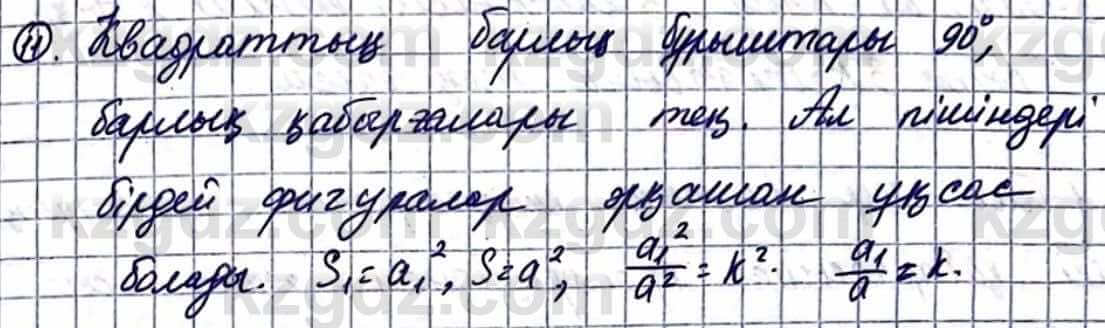 11. Квадраттың барлық бұрыштары 90°,
барлық қабырғалары тең. Ал пішіндері
бірдей фигуралар әрқашан ұқсас
болады. S₁ = a₁², S = a², a₁²/a² = k². a₁/a = k.